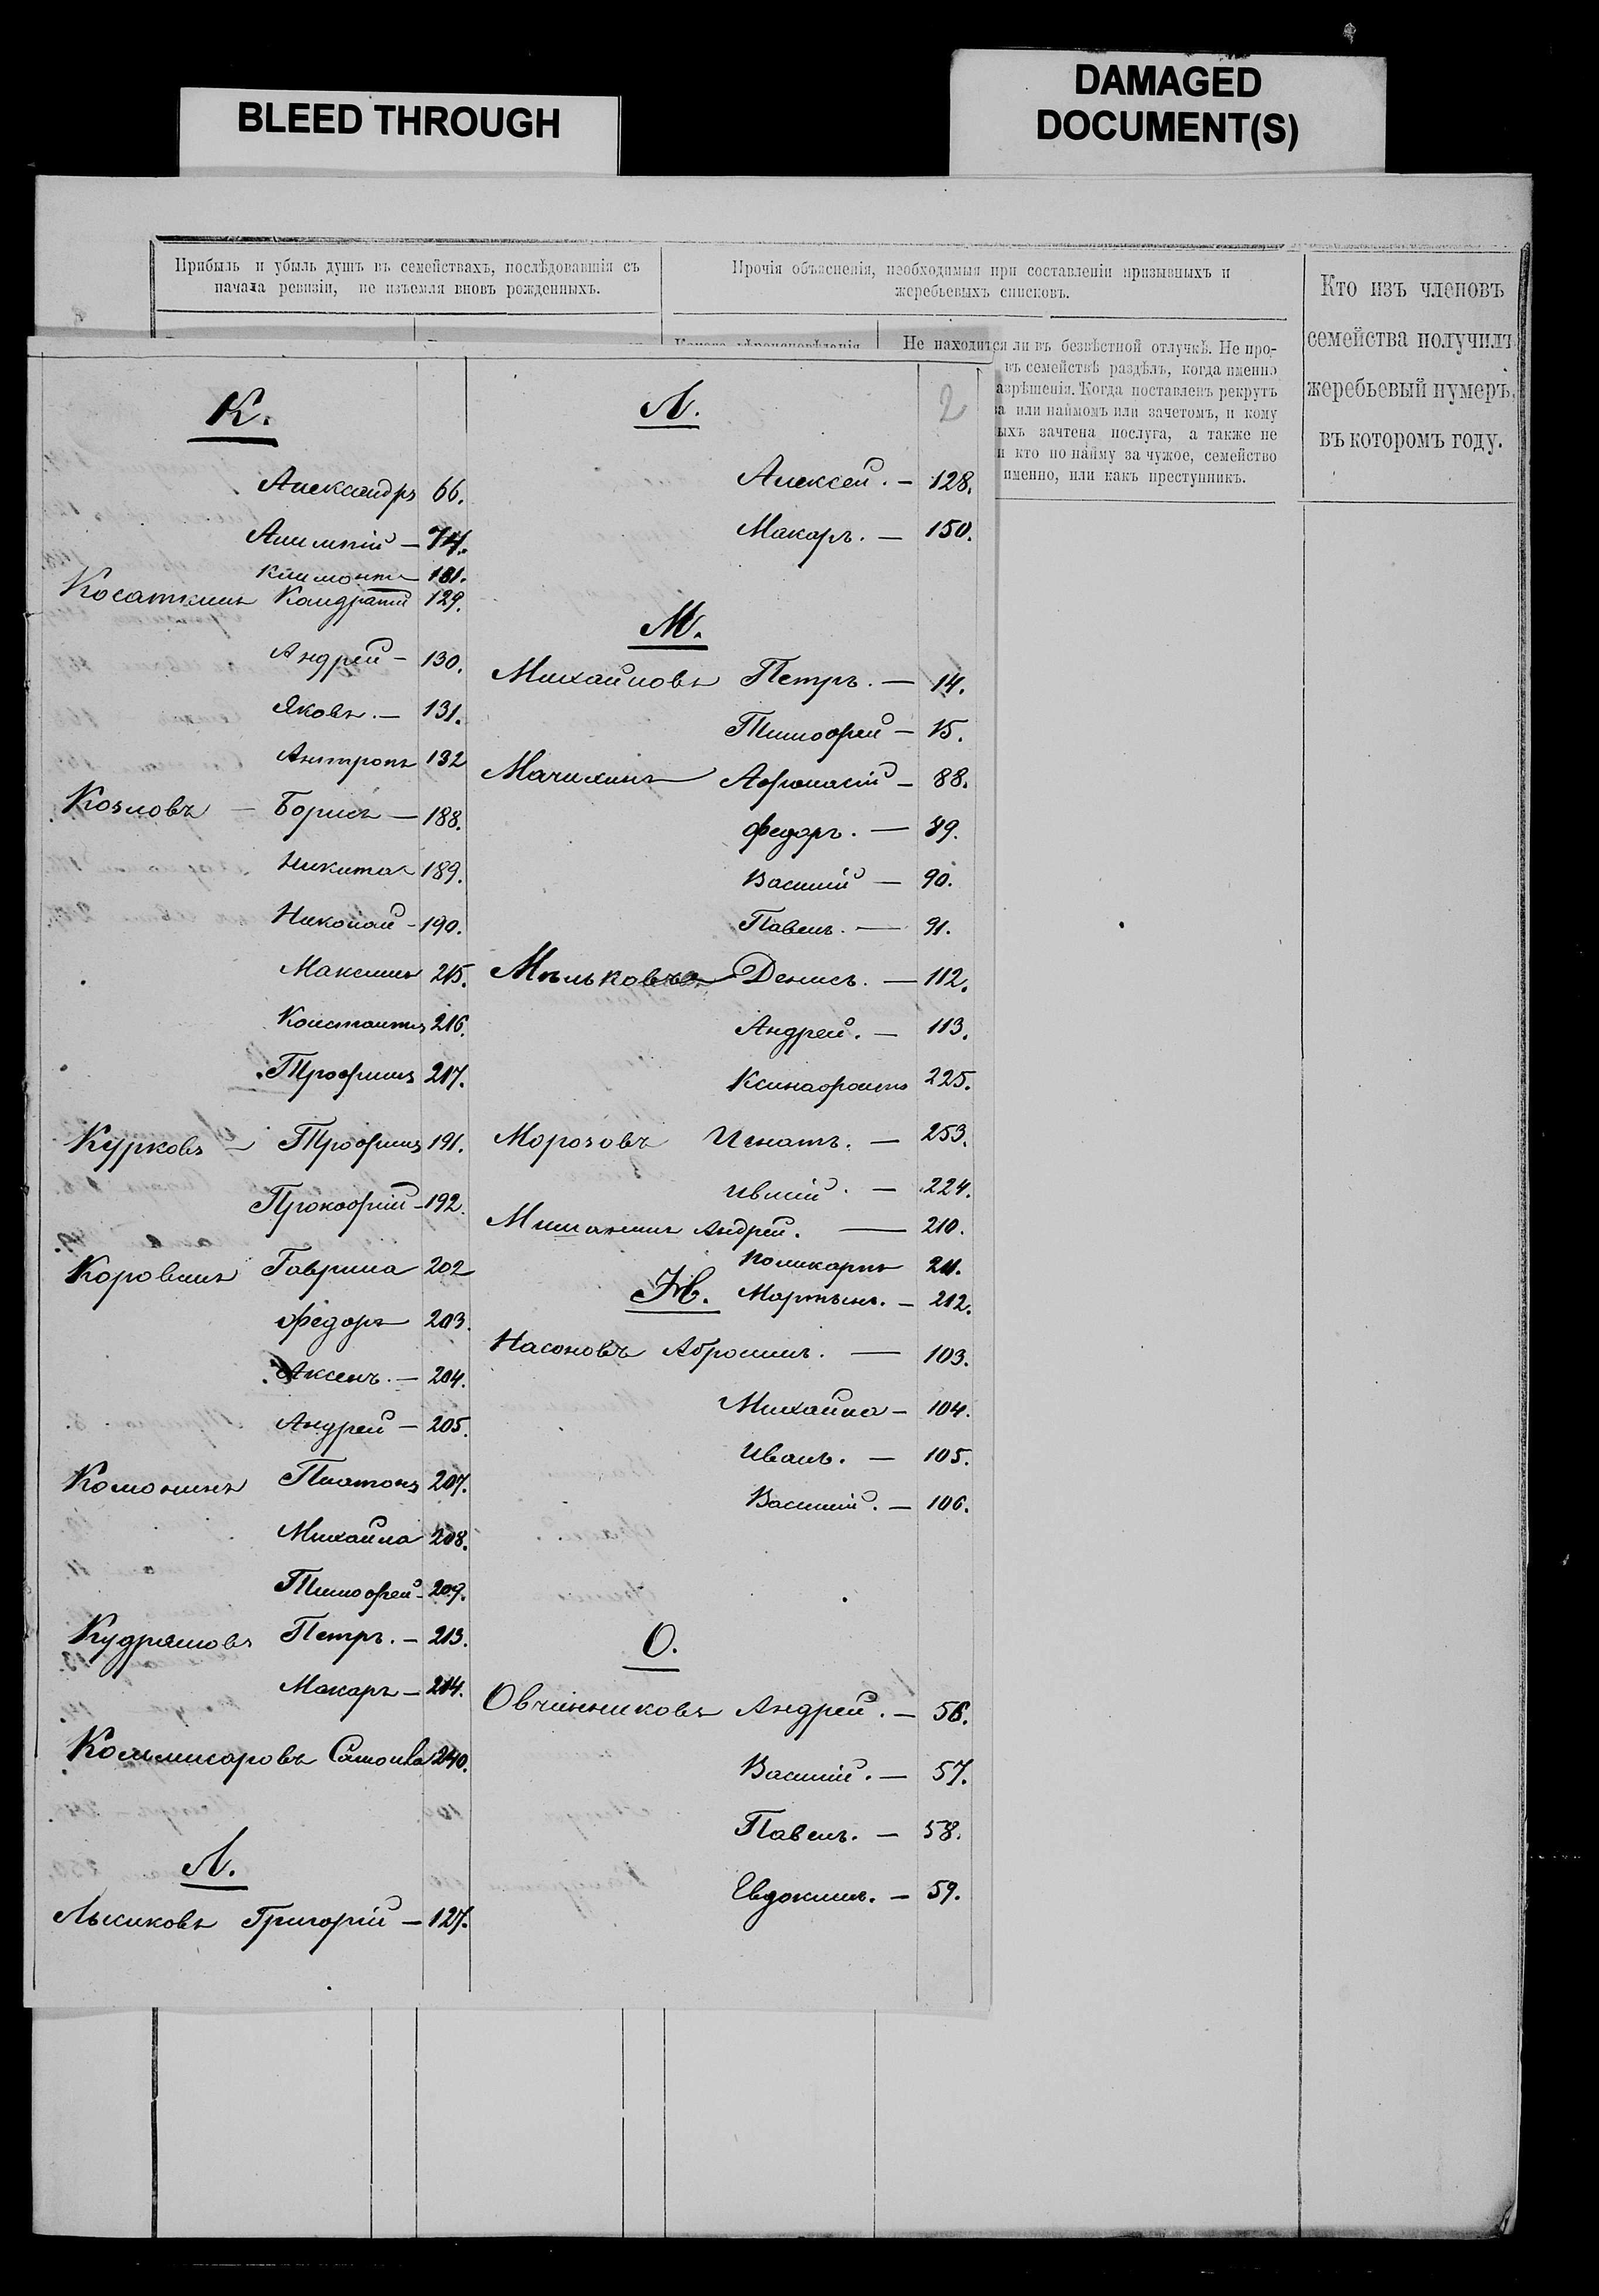 BLEED THROUGH
DAMAGED
DOCUMENT(S)
Прибыль и убыль душъ въ семействахъ, послѣдовавшія съ
начала ревизіи, не изъемля вновь рожденныхъ.
Прочія объясненія, необходимыя при составленіи призывныхъ и
жеребьевыхъ списковъ.
Кто изъ членовъ
семейства получилъ
жеребьевый нумеръ,
въ которомъ году.
Не находится ли въ безвѣстной отлучкѣ. Не про-
въ семействѣ раздѣлъ, когда именно
азрѣшенія. Когда поставленъ рекрутъ
или наймомъ или зачетомъ, и кому
ыхъ зачтена послуга, а также не
и кто по найму за чужое, семейство
именно, или какъ преступникъ.
К.
Александръ 66.
Алимпій — 74.
Климонтъ 181.
Косаткинъ Кондратій 129.
Андрей — 130.
Яковъ. — 131.
Антропъ 132
Козловъ — Борисъ — 188.
Никита 189.
Николай - 190.
Максимъ 215.
Константинъ 216.
Трофимъ 217.
Курковъ — Трофимъ 191.
Прокофій - 192.
Коровинъ Гаврила 202
Федоръ 203.
Аксенъ. — 204.
Андрей — 205.
Комонинъ Платонъ 207.
Михайла 208.
Тимофей - 209.
Кудряшовъ Петръ. — 213.
Макаръ — 214.
Коммисаровъ Самойла 240.
Л.
Лысиковъ Григорій — 127.
2
Л.
Алексей. — 128.
Макаръ. — 150.
М.
Михайловъ Петръ. — 14.
Тимофей — 15.
Мачихинъ Афонасій — 88.
Федоръ. — 89.
Василій — 90.
Павелъ. — 91.
Мѣльковъ Денисъ. — 112.
Андрей. — 113.
Ксинафонтъ 225.
Морозовъ Игнатъ. — 253.
Ивлій. — 224.
Мишанинъ Андрей. — 210.
Поликарпъ 211.
Н. Мартынъ. — 212.
Насоновъ Абросимъ. — 103.
Михайла — 104.
Иванъ. — 105.
Василій. — 106.
О.
Овчинниковъ Андрей. — 56.
Василій. — 57.
Павелъ. — 58.
Евдокимъ. — 59.